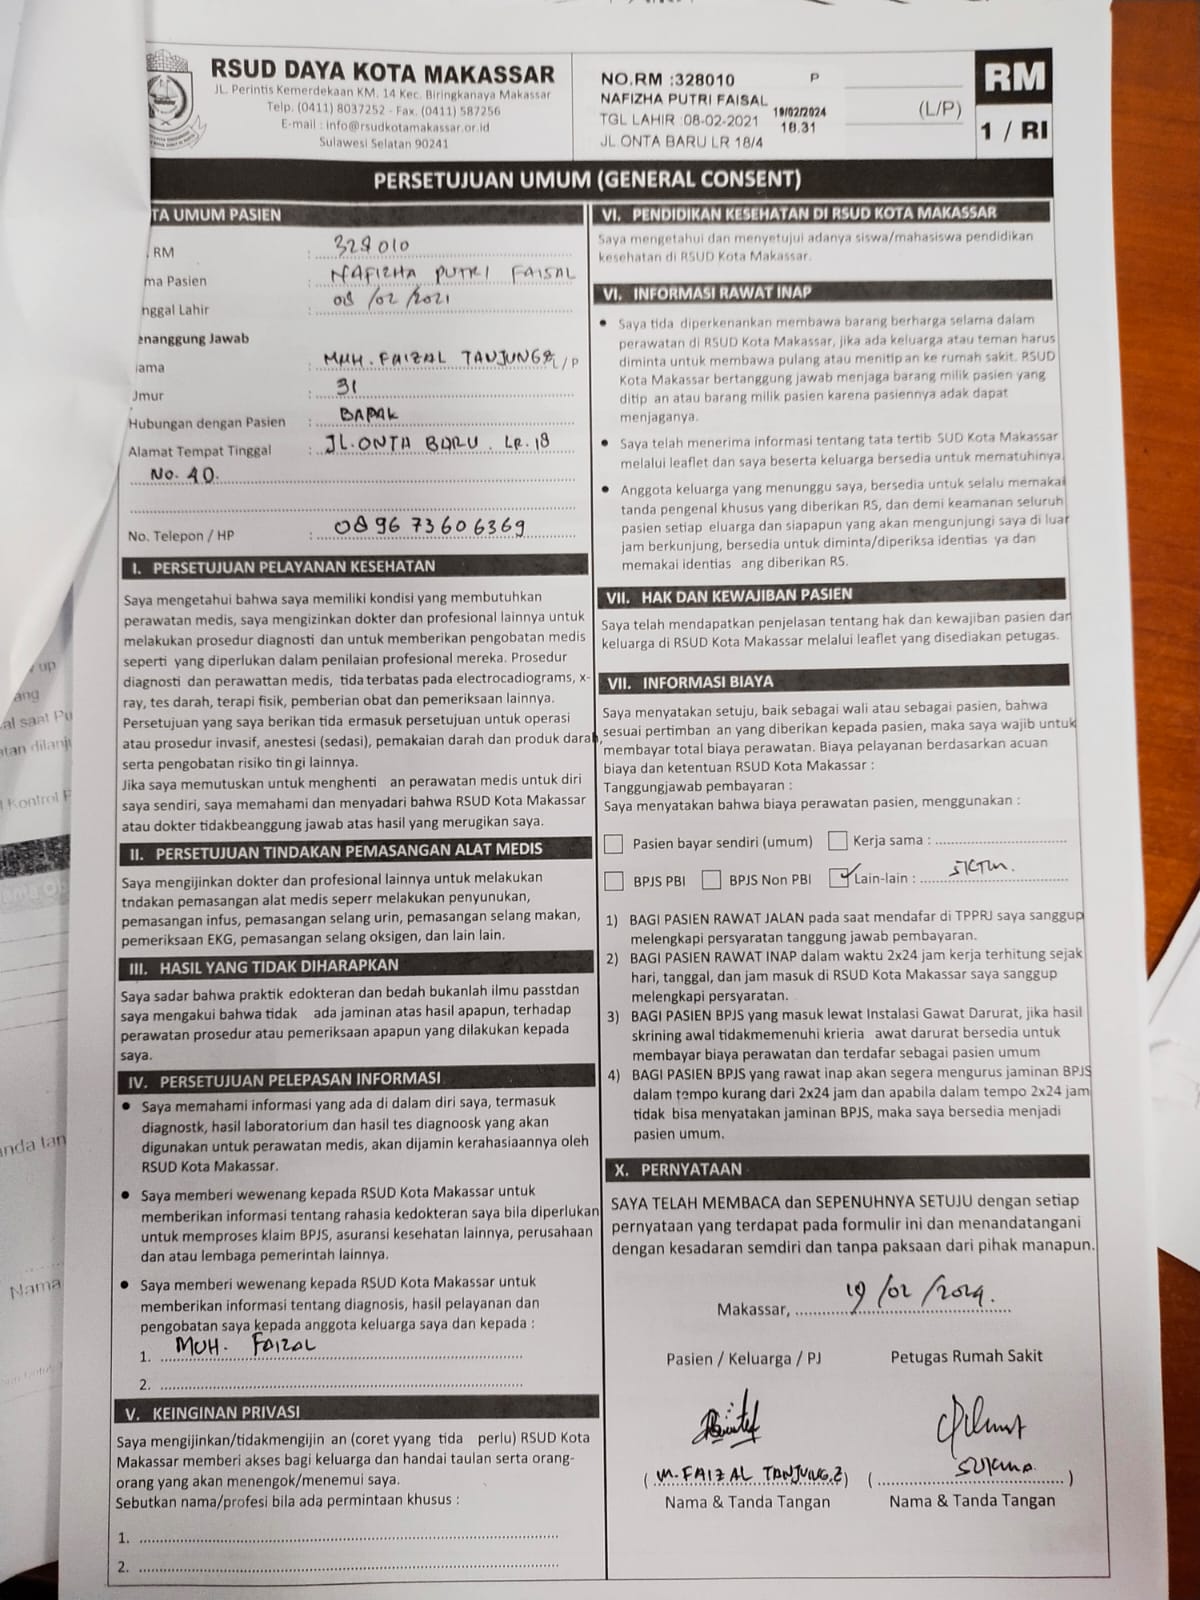 RSUD DAYA KOTA MAKASSAR
JL. Perintis Kemerdekaan KM. 14 Kec. Biringkanaya Makassar
Telp. (0411) 8037252 - Fax. (0411) 587256
E-mail : info@rsudkotamakassar.or.id
Sulawesi Selatan 90241
NO.RM :328010 P
NAFIZHA PUTRI FAISAL
TGL LAHIR :08-02-2021
19/02/2024
18.31
JL ONTA BARU LR 18/4
(L/P)
RM
1 / RI
PERSETUJUAN UMUM (GENERAL CONSENT)
TA UMUM PASIEN
RM : 328010
ma Pasien : NAFIZHA PUTRI FAISAL
nggal Lahir : 08 /02 /2021
enanggung Jawab
ama : MUH. FAIZAL TANJUNG Z L/P
Umur : 31
Hubungan dengan Pasien : BAPAK
Alamat Tempat Tinggal : JL. ONTA BARU LR. 18
No. 40.
No. Telepon / HP : 089673606369
I. PERSETUJUAN PELAYANAN KESEHATAN
Saya mengetahui bahwa saya memiliki kondisi yang membutuhkan
perawatan medis, saya mengizinkan dokter dan profesional lainnya untuk
melakukan prosedur diagnosti dan untuk memberikan pengobatan medis
seperti yang diperlukan dalam penilaian profesional mereka. Prosedur
diagnosti dan perawattan medis, tida terbatas pada electrocadiograms, x-
ray, tes darah, terapi fisik, pemberian obat dan pemeriksaan lainnya.
Persetujuan yang saya berikan tida ermasuk persetujuan untuk operasi
atau prosedur invasif, anestesi (sedasi), pemakaian darah dan produk darah,
serta pengobatan risiko tin gi lainnya.
Jika saya memutuskan untuk menghenti an perawatan medis untuk diri
saya sendiri, saya memahami dan menyadari bahwa RSUD Kota Makassar
atau dokter tidakbeanggung jawab atas hasil yang merugikan saya.
II. PERSETUJUAN TINDAKAN PEMASANGAN ALAT MEDIS
Saya mengijinkan dokter dan profesional lainnya untuk melakukan
tndakan pemasangan alat medis seperr melakukan penyunukan,
pemasangan infus, pemasangan selang urin, pemasangan selang makan,
pemeriksaan EKG, pemasangan selang oksigen, dan lain lain.
III. HASIL YANG TIDAK DIHARAPKAN
Saya sadar bahwa praktik edokteran dan bedah bukanlah ilmu passtdan
saya mengakui bahwa tidak ada jaminan atas hasil apapun, terhadap
perawatan prosedur atau pemeriksaan apapun yang dilakukan kepada
saya.
IV. PERSETUJUAN PELEPASAN INFORMASI
• Saya memahami informasi yang ada di dalam diri saya, termasuk
diagnostk, hasil laboratorium dan hasil tes diagnoosk yang akan
digunakan untuk perawatan medis, akan dijamin kerahasiaannya oleh
RSUD Kota Makassar.
• Saya memberi wewenang kepada RSUD Kota Makassar untuk
memberikan informasi tentang rahasia kedokteran saya bila diperlukan
untuk memproses klaim BPJS, asuransi kesehatan lainnya, perusahaan
dan atau lembaga pemerintah lainnya.
• Saya memberi wewenang kepada RSUD Kota Makassar untuk
memberikan informasi tentang diagnosis, hasil pelayanan dan
pengobatan saya kepada anggota keluarga saya dan kepada :
1. MUH. FAIZAL
2.
V. KEINGINAN PRIVASI
Saya mengijinkan/tidakmengijin an (coret yyang tida perlu) RSUD Kota
Makassar memberi akses bagi keluarga dan handai taulan serta orang-
orang yang akan menengok/menemui saya.
Sebutkan nama/profesi bila ada permintaan khusus :
1.
2.
VI. PENDIDIKAN KESEHATAN DI RSUD KOTA MAKASSAR
Saya mengetahui dan menyetujui adanya siswa/mahasiswa pendidikan
kesehatan di RSUD Kota Makassar.
VI. INFORMASI RAWAT INAP
• Saya tida diperkenankan membawa barang berharga selama dalam
perawatan di RSUD Kota Makassar, jika ada keluarga atau teman harus
diminta untuk membawa pulang atau menitip an ke rumah sakit. RSUD
Kota Makassar bertanggung jawab menjaga barang milik pasien yang
ditip an atau barang milik pasien karena pasiennya adak dapat
menjaganya.
• Saya telah menerima informasi tentang tata tertib SUD Kota Makassar
melalui leaflet dan saya beserta keluarga bersedia untuk mematuhinya.
• Anggota keluarga yang menunggu saya, bersedia untuk selalu memakai
tanda pengenal khusus yang diberikan RS, dan demi keamanan seluruh
pasien setiap eluarga dan siapapun yang akan mengunjungi saya di luar
jam berkunjung, bersedia untuk diminta/diperiksa identias ya dan
memakai identias ang diberikan RS.
VII. HAK DAN KEWAJIBAN PASIEN
Saya telah mendapatkan penjelasan tentang hak dan kewajiban pasien dan
keluarga di RSUD Kota Makassar melalui leaflet yang disediakan petugas.
VII. INFORMASI BIAYA
Saya menyatakan setuju, baik sebagai wali atau sebagai pasien, bahwa
sesuai pertimban an yang diberikan kepada pasien, maka saya wajib untuk
membayar total biaya perawatan. Biaya pelayanan berdasarkan acuan
biaya dan ketentuan RSUD Kota Makassar :
Tanggungjawab pembayaran :
Saya menyatakan bahwa biaya perawatan pasien, menggunakan :
Pasien bayar sendiri (umum) Kerja sama :
BPJS PBI BPJS Non PBI Lain-lain : SKTM.
1) BAGI PASIEN RAWAT JALAN pada saat mendafar di TPPRJ saya sanggup
melengkapi persyaratan tanggung jawab pembayaran.
2) BAGI PASIEN RAWAT INAP dalam waktu 2x24 jam kerja terhitung sejak
hari, tanggal, dan jam masuk di RSUD Kota Makassar saya sanggup
melengkapi persyaratan.
3) BAGI PASIEN BPJS yang masuk lewat Instalasi Gawat Darurat, jika hasil
skrining awal tidakmemenuhi krieria awat darurat bersedia untuk
membayar biaya perawatan dan terdafar sebagai pasien umum
4) BAGI PASIEN BPJS yang rawat inap akan segera mengurus jaminan BPJS
dalam tempo kurang dari 2x24 jam dan apabila dalam tempo 2x24 jam
tidak bisa menyatakan jaminan BPJS, maka saya bersedia menjadi
pasien umum.
X. PERNYATAAN
SAYA TELAH MEMBACA dan SEPENUHNYA SETUJU dengan setiap
pernyataan yang terdapat pada formulir ini dan menandatangani
dengan kesadaran semdiri dan tanpa paksaan dari pihak manapun.
Makassar, 19/02/2024.
Pasien / Keluarga / PJ Petugas Rumah Sakit
( M. FAIZAL TANJUNG. Z ) ( )
Nama & Tanda Tangan Nama & Tanda Tangan